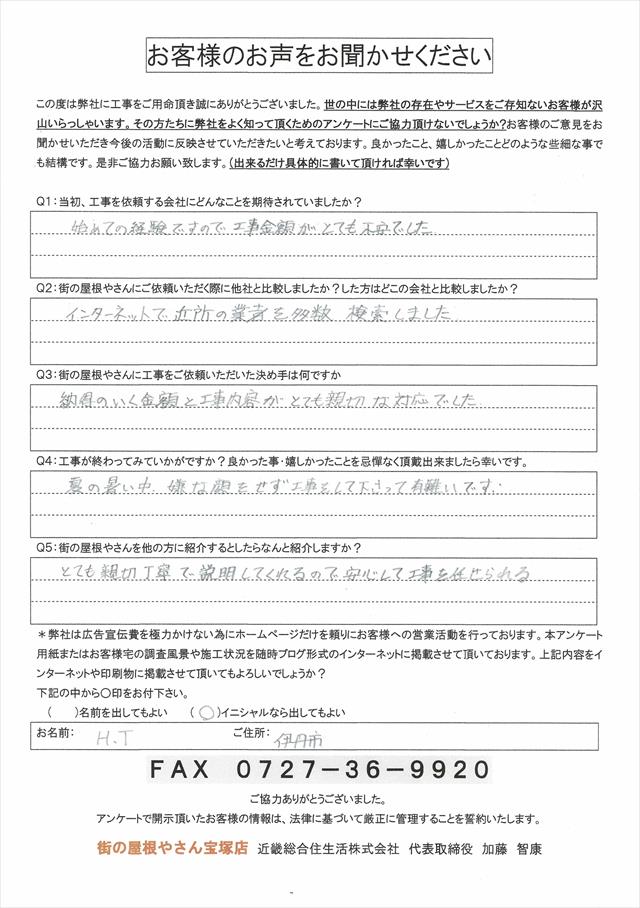 お客様のお声をお聞かせください
この度は弊社に工事をご用命頂き誠にありがとうございました。世の中には弊社の存在やサービスをご存知ないお客様が沢
山いらっしゃいます。その方たちに弊社をよく知って頂くためのアンケートにご協力頂けないでしょうか?お客様のご意見をお
聞かせいただき今後の活動に反映させていただきたいと考えております。良かったこと、嬉しかったことどのような些細な事で
も結構です。是非ご協力お願い致します。(出来るだけ具体的に書いて頂ければ幸いです)
Q1:当初、工事を依頼する会社にどんなことを期待されていましたか?
始めての経験ですので工事金額がとても不安でした
Q2:街の屋根やさんにご依頼いただく際に他社と比較しましたか?した方はどこの会社と比較しましたか?
インターネットで近所の業者を多数 検索しました
Q3:街の屋根やさんに工事をご依頼いただいた決め手は何ですか
納得のいく金額と工事内容がとても親切な対応でした
Q4:工事が終わってみていかがですか?良かった事・嬉しかったことを忌憚なく頂戴出来ましたら幸いです。
夏の暑い中 嫌な顔をせず工事をして下さって有難いです.
Q5:街の屋根やさんを他の方に紹介するとしたらなんと紹介しますか?
とても親切丁寧で説明してくれるので安心して工事を任せられる
*弊社は広告宣伝費を極力かけない為にホームページだけを頼りにお客様への営業活動を行っております。本アンケート
用紙またはお客様宅の調査風景や施工状況を随時ブログ形式のインターネットに掲載させて頂いております。上記内容をイ
ンターネットや印刷物に掲載させて頂いてもよろしいでしょうか?
下記の中から〇印をお付下さい。
( )名前を出してもよい (〇)イニシャルなら出してもよい
お名前: H.T ご住所: 伊丹市
FAX 0727-36-9920
ご協力ありがとうございました。
アンケートで開示頂いたお客様の情報は、法律に基づいて厳正に管理することを誓約いたします。
街の屋根やさん宝塚店 近畿総合住生活株式会社 代表取締役 加藤 智康